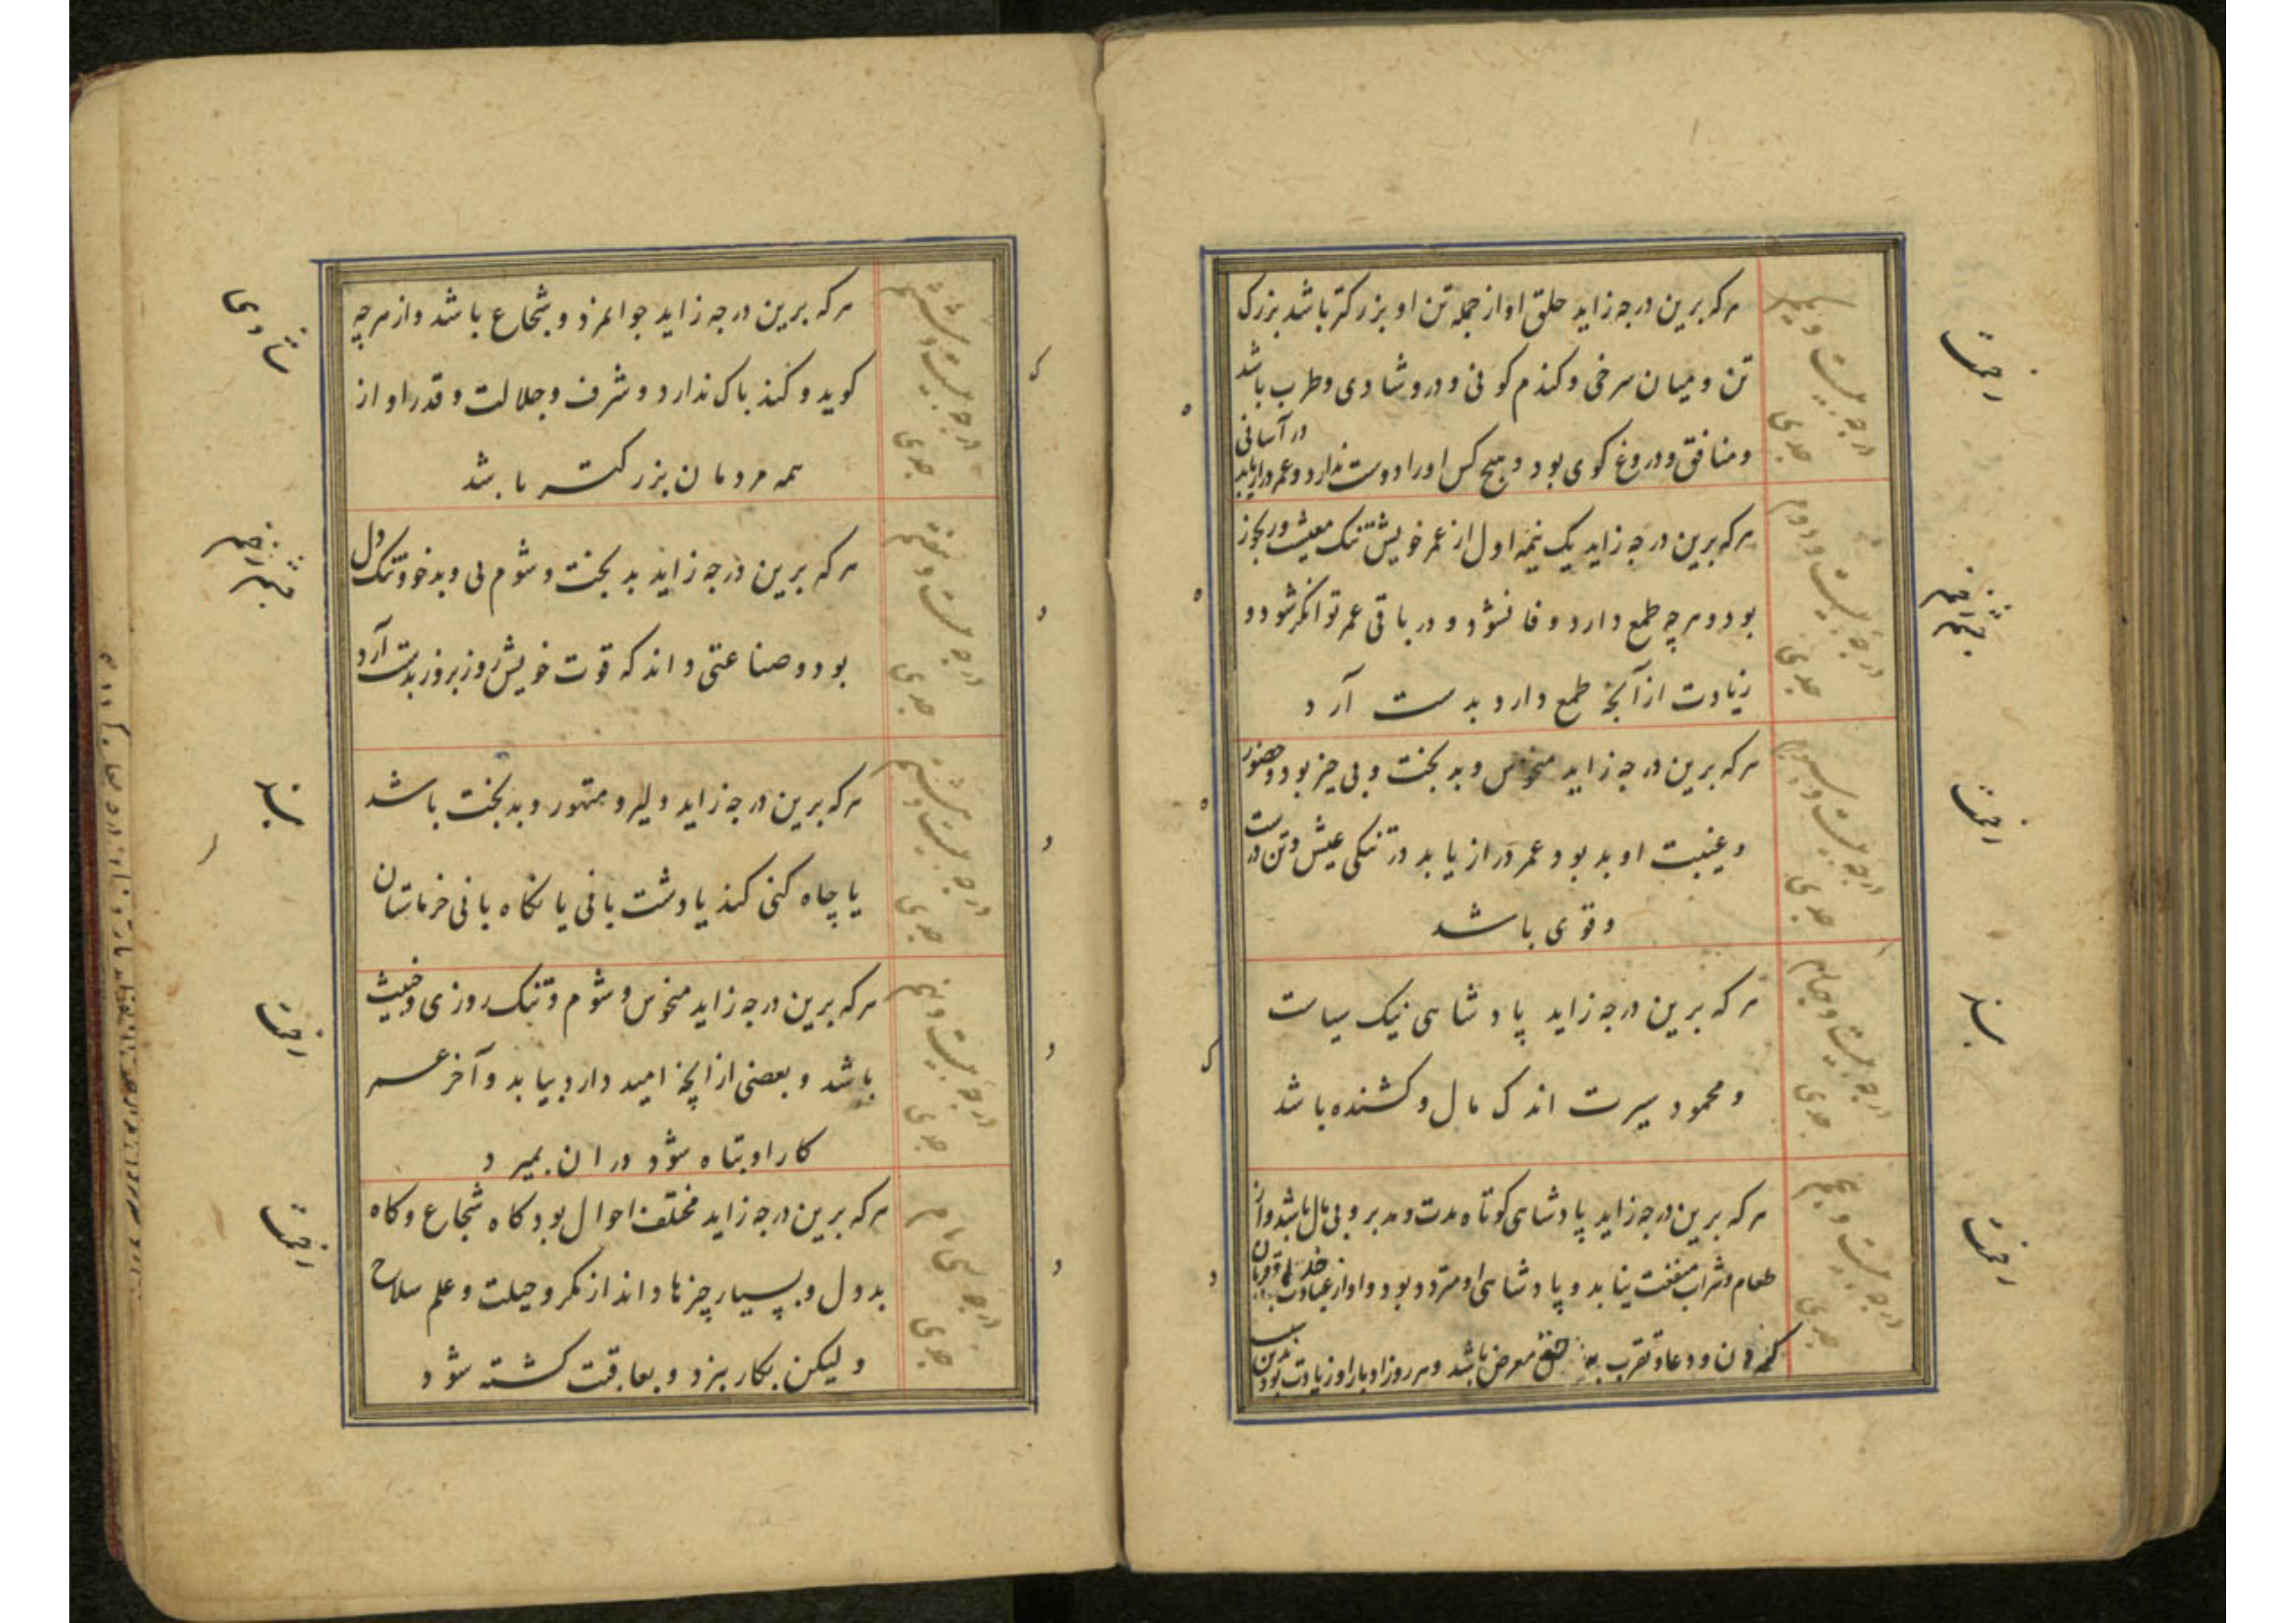 درجه بیست و یکم
جدی
هرکه برین درجه زاید حلق او از جمله تن او بزرکتر باشد بزرک
تن و میان سرخی و کندم کونی و درو شادی و طرب باشد
و منافق و دروغ کوی بود و هیچ کس او را دوست ندارد و عمر دراز یابد
در آسانی
درجه بیست و دوم
جدی
هرکه برین درجه زاید یک نیمه اول از عمر خویش تنک معیشت و رنجور
بود و هرچه طمع دارد وفا نشود و در باقی عمر توانکر شود و
زیادت از آنچه طمع دارد بدست آرد
درجه بیست و سیوم
جدی
هرکه برین درجه زاید منحوس و بدبخت و بی چیز بود و حضور
و غیبت او بد بود و عمر دراز یابد در تنکی عیش و تن درست
و قوی باشد
درجه بیست و چهارم
جدی
هرکه برین درجه زاید پادشاهی نیک سیاست
و محمود سیرت اندک مال و کشنده باشد
درجه بیست و پنجم
جدی
هرکه برین درجه زاید پادشاهی کوتاه مدت و مدبر و بی مال باشد و از
طعام و شراب منفعت نیابد و پادشاهی او متردد بود و او از عبادت
کردن و دعا و تقرب معرض باشد و هر روز ادبار او زیادت بود
درجه بیست و ششم
جدی
هرکه برین درجه زاید جوانمرد و شجاع باشد و از هرچه
کوید و کند باک ندارد و شرف و جلالت و قدر او از
همه مردمان بزرکتر باشد
درجه بیست و هفتم
جدی
هرکه برین درجه زاید بدبخت و شوم پی و بدخو و تنک دل
بود و صناعتی داند که قوت خویش روز بروز بدست آرد
درجه بیست و هشتم
جدی
هرکه برین درجه زاید دلیر و متهور و بدبخت باشد
یا چاه کنی کند یا دشت بانی یا نکاه بانی خرماستان
درجه بیست و نهم
جدی
هرکه برین درجه زاید منحوس و شوم و تنک روزی و خبیث
باشد و بعضی از آنچه امید دارد بیابد و آخر عمر
کار او تباه شود در آن بمیرد
درجه سی ام
جدی
هرکه برین درجه زاید مختلف احوال بود کاه شجاع و کاه
بددل و بسیار چیزها داند از مکر و حیلت و علم سلاح
ولیکن بکار نبرد و بعاقبت کشته شود